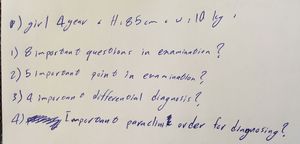 *) girl 4 year . H: 85 cm . w: 10 kg .
1) 8 important questions in examination?
2) 5 important point in examination?
3) 4 important differential diagnosis?
4) Important paraclinic order for diagnosing?